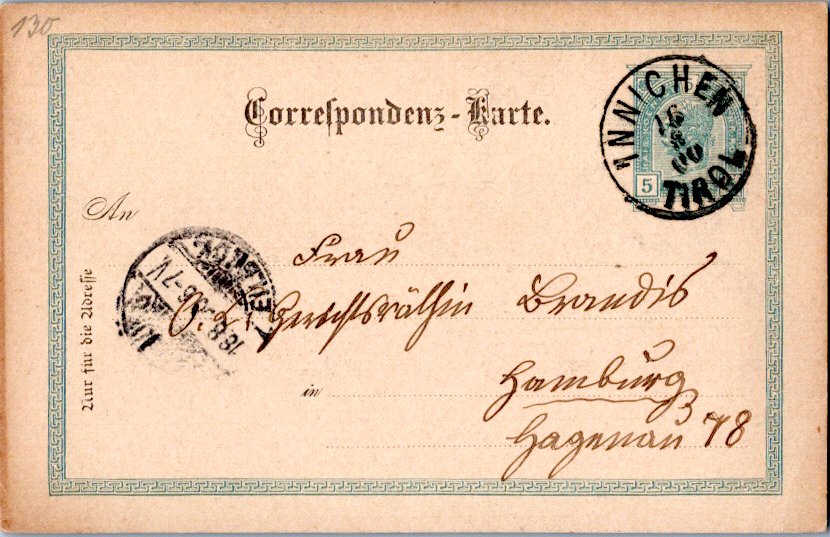 130
Correspondenz-Karte.
INNICHEN
16
8
00
TIROL
5
An
Nur für die Adresse
Frau
O. L. Gerichtsräthin Brandis
in
Hamburg
Hagenau 78
18.8.
6-7V